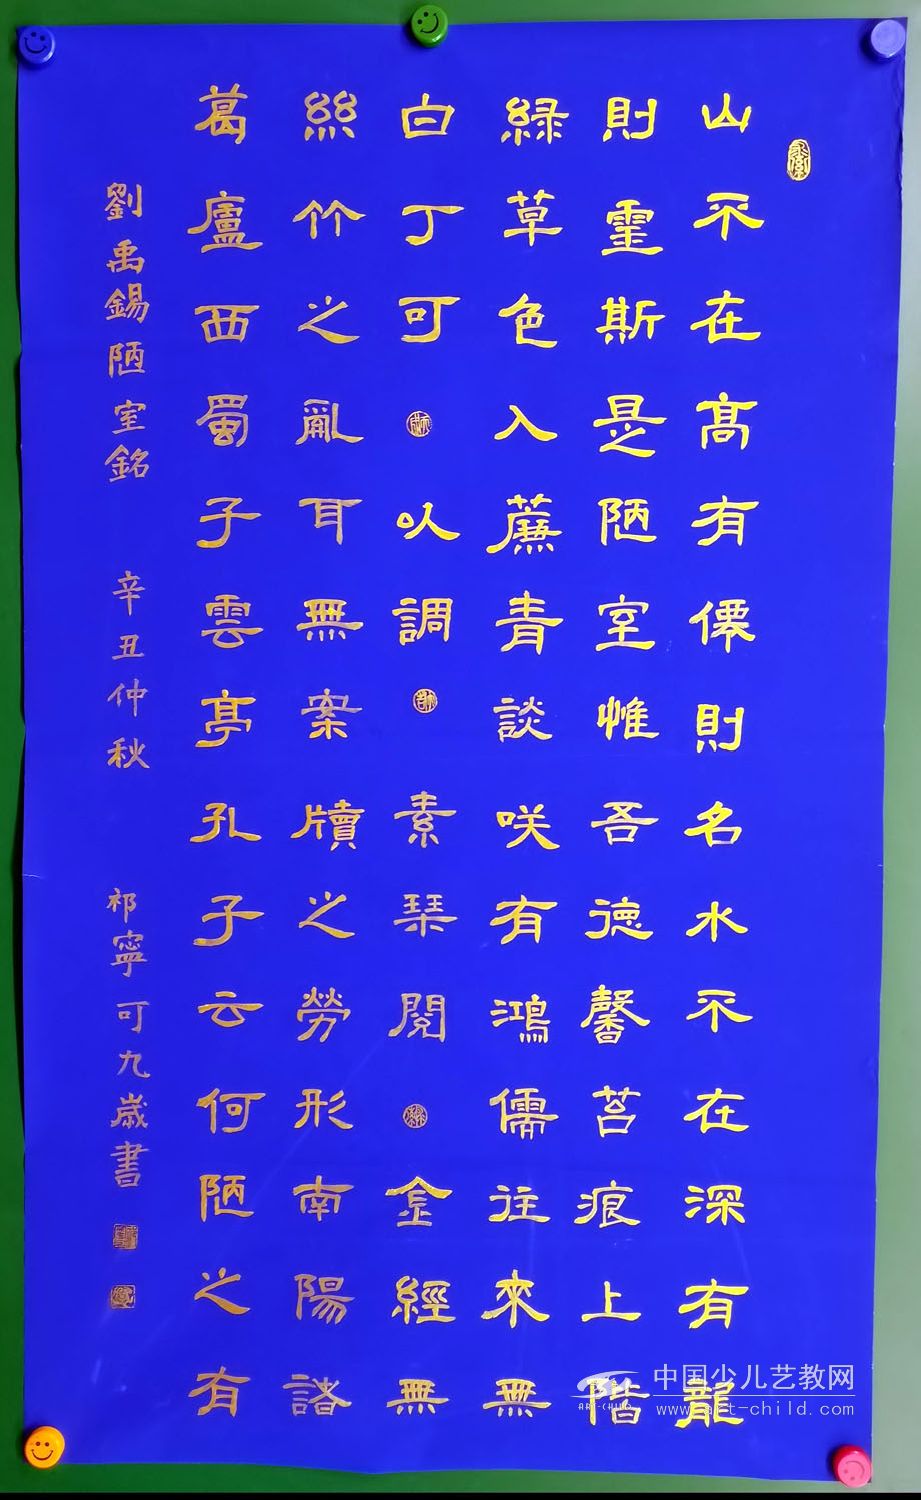 山不在高有僊則名水不在深有龍
則靈斯是陋室惟吾德馨苔痕上階
緑草色入薕青談咲有鴻儒往來無
白丁可以調素琹閱金經無
絲竹之亂耳無案牘之勞形南陽諸
葛廬西蜀子雲亭孔子云何陋之有
劉禹錫陋室銘 辛丑仲秋 祁寧可九歲書
中国少儿艺教网
www.art-child.com
ART-CHILD